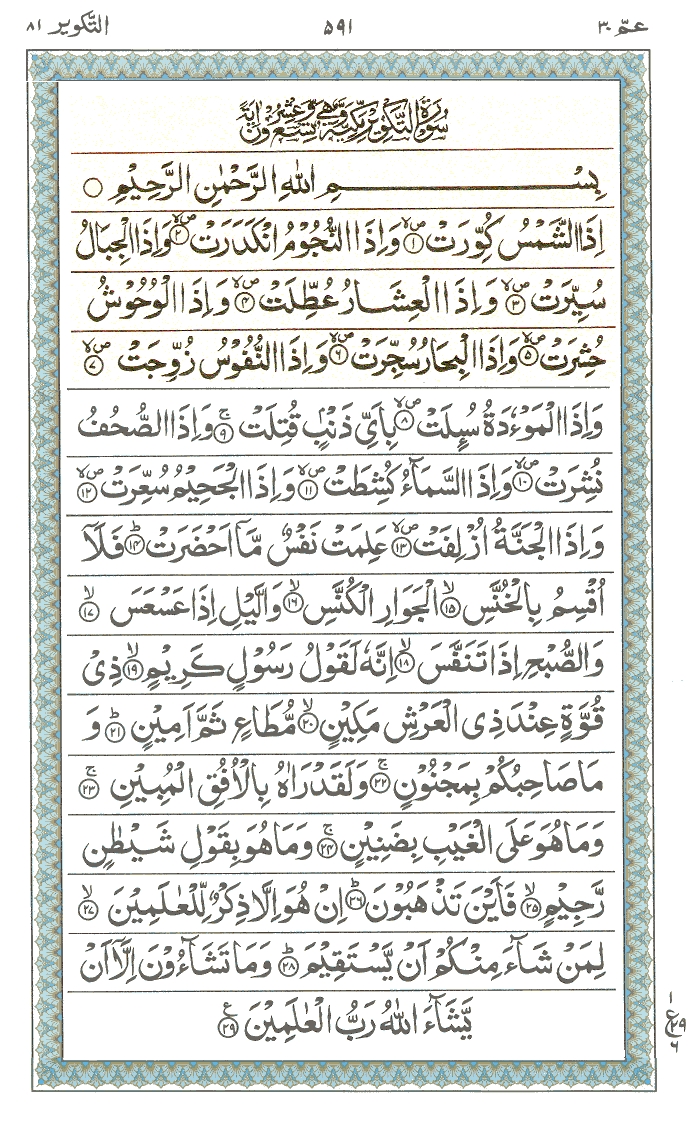 التكوير ٨١ ٥٩١ عمّ ٣٠
سُوْرَةُ التَّكْوِيْرِ مَكِّيَّةٌ وَّهِيَ تِسْعٌ وَّعِشْرُوْنَ اٰيَةً
بِسْمِ اللّٰهِ الرَّحْمٰنِ الرَّحِيْمِ ○
اِذَا الشَّمْسُ كُوِّرَتْ ۪ۙ ﴿١﴾ وَاِذَا النُّجُوْمُ انْكَدَرَتْ ۪ۙ ﴿٢﴾ وَاِذَا الْجِبَالُ
سُيِّرَتْ ۪ۙ ﴿٣﴾ وَاِذَا الْعِشَارُ عُطِّلَتْ ۪ۙ ﴿٤﴾ وَاِذَا الْوُحُوْشُ
حُشِرَتْ ۪ۙ ﴿٥﴾ وَاِذَا الْبِحَارُ سُجِّرَتْ ۪ۙ ﴿٦﴾ وَاِذَا النُّفُوْسُ زُوِّجَتْ ۪ۙ ﴿٧﴾
وَاِذَا الْمَوْءٗدَةُ سُىِٕلَتْ ۪ۙ ﴿٨﴾ بِاَىِّ ذَنْۢبٍ قُتِلَتْ ۚ ﴿٩﴾ وَاِذَا الصُّحُفُ
نُشِرَتْ ۪ۙ ﴿١٠﴾ وَاِذَا السَّمَآءُ كُشِطَتْ ۪ۙ ﴿١١﴾ وَاِذَا الْجَحِيْمُ سُعِّرَتْ ۪ۙ ﴿١٢﴾
وَاِذَا الْجَنَّةُ اُزْلِفَتْ ۪ۙ ﴿١٣﴾ عَلِمَتْ نَفْسٌ مَّاۤ اَحْضَرَتْ ؕ ﴿١٤﴾ فَلَاۤ
اُقْسِمُ بِالْخُنَّسِ ۙ ﴿١٥﴾ الْجَوَارِ الْكُنَّسِ ۙ ﴿١٦﴾ وَالَّيْلِ اِذَا عَسْعَسَ ۙ ﴿١٧﴾
وَالصُّبْحِ اِذَا تَنَفَّسَ ۙ ﴿١٨﴾ اِنَّهٗ لَقَوْلُ رَسُوْلٍ كَرِيْمٍ ۙ ﴿١٩﴾ ذِىْ
قُوَّةٍ عِنْدَ ذِى الْعَرْشِ مَكِيْنٍ ۙ ﴿٢٠﴾ مُّطَاعٍ ثَمَّ اَمِيْنٍ ؕ ﴿٢١﴾ وَ
مَا صَاحِبُكُمْ بِمَجْنُوْنٍ ۚ ﴿٢٢﴾ وَلَقَدْ رَاٰهُ بِالْاُفُقِ الْمُبِيْنِ ۚ ﴿٢٣﴾
وَمَا هُوَ عَلَى الْغَيْبِ بِضَنِيْنٍ ۚ ﴿٢٤﴾ وَمَا هُوَ بِقَوْلِ شَيْطٰنٍ
رَّجِيْمٍ ۙ ﴿٢٥﴾ فَاَيْنَ تَذْهَبُوْنَ ؕ ﴿٢٦﴾ اِنْ هُوَ اِلَّا ذِكْرٌ لِّلْعٰلَمِيْنَ ۙ ﴿٢٧﴾
لِمَنْ شَآءَ مِنْكُمْ اَنْ يَّسْتَقِيْمَ ؕ ﴿٢٨﴾ وَمَا تَشَآءُوْنَ اِلَّاۤ اَنْ
يَّشَآءَ اللّٰهُ رَبُّ الْعٰلَمِيْنَ ﴿٢٩﴾ ع
١
ع ٢٩
٦